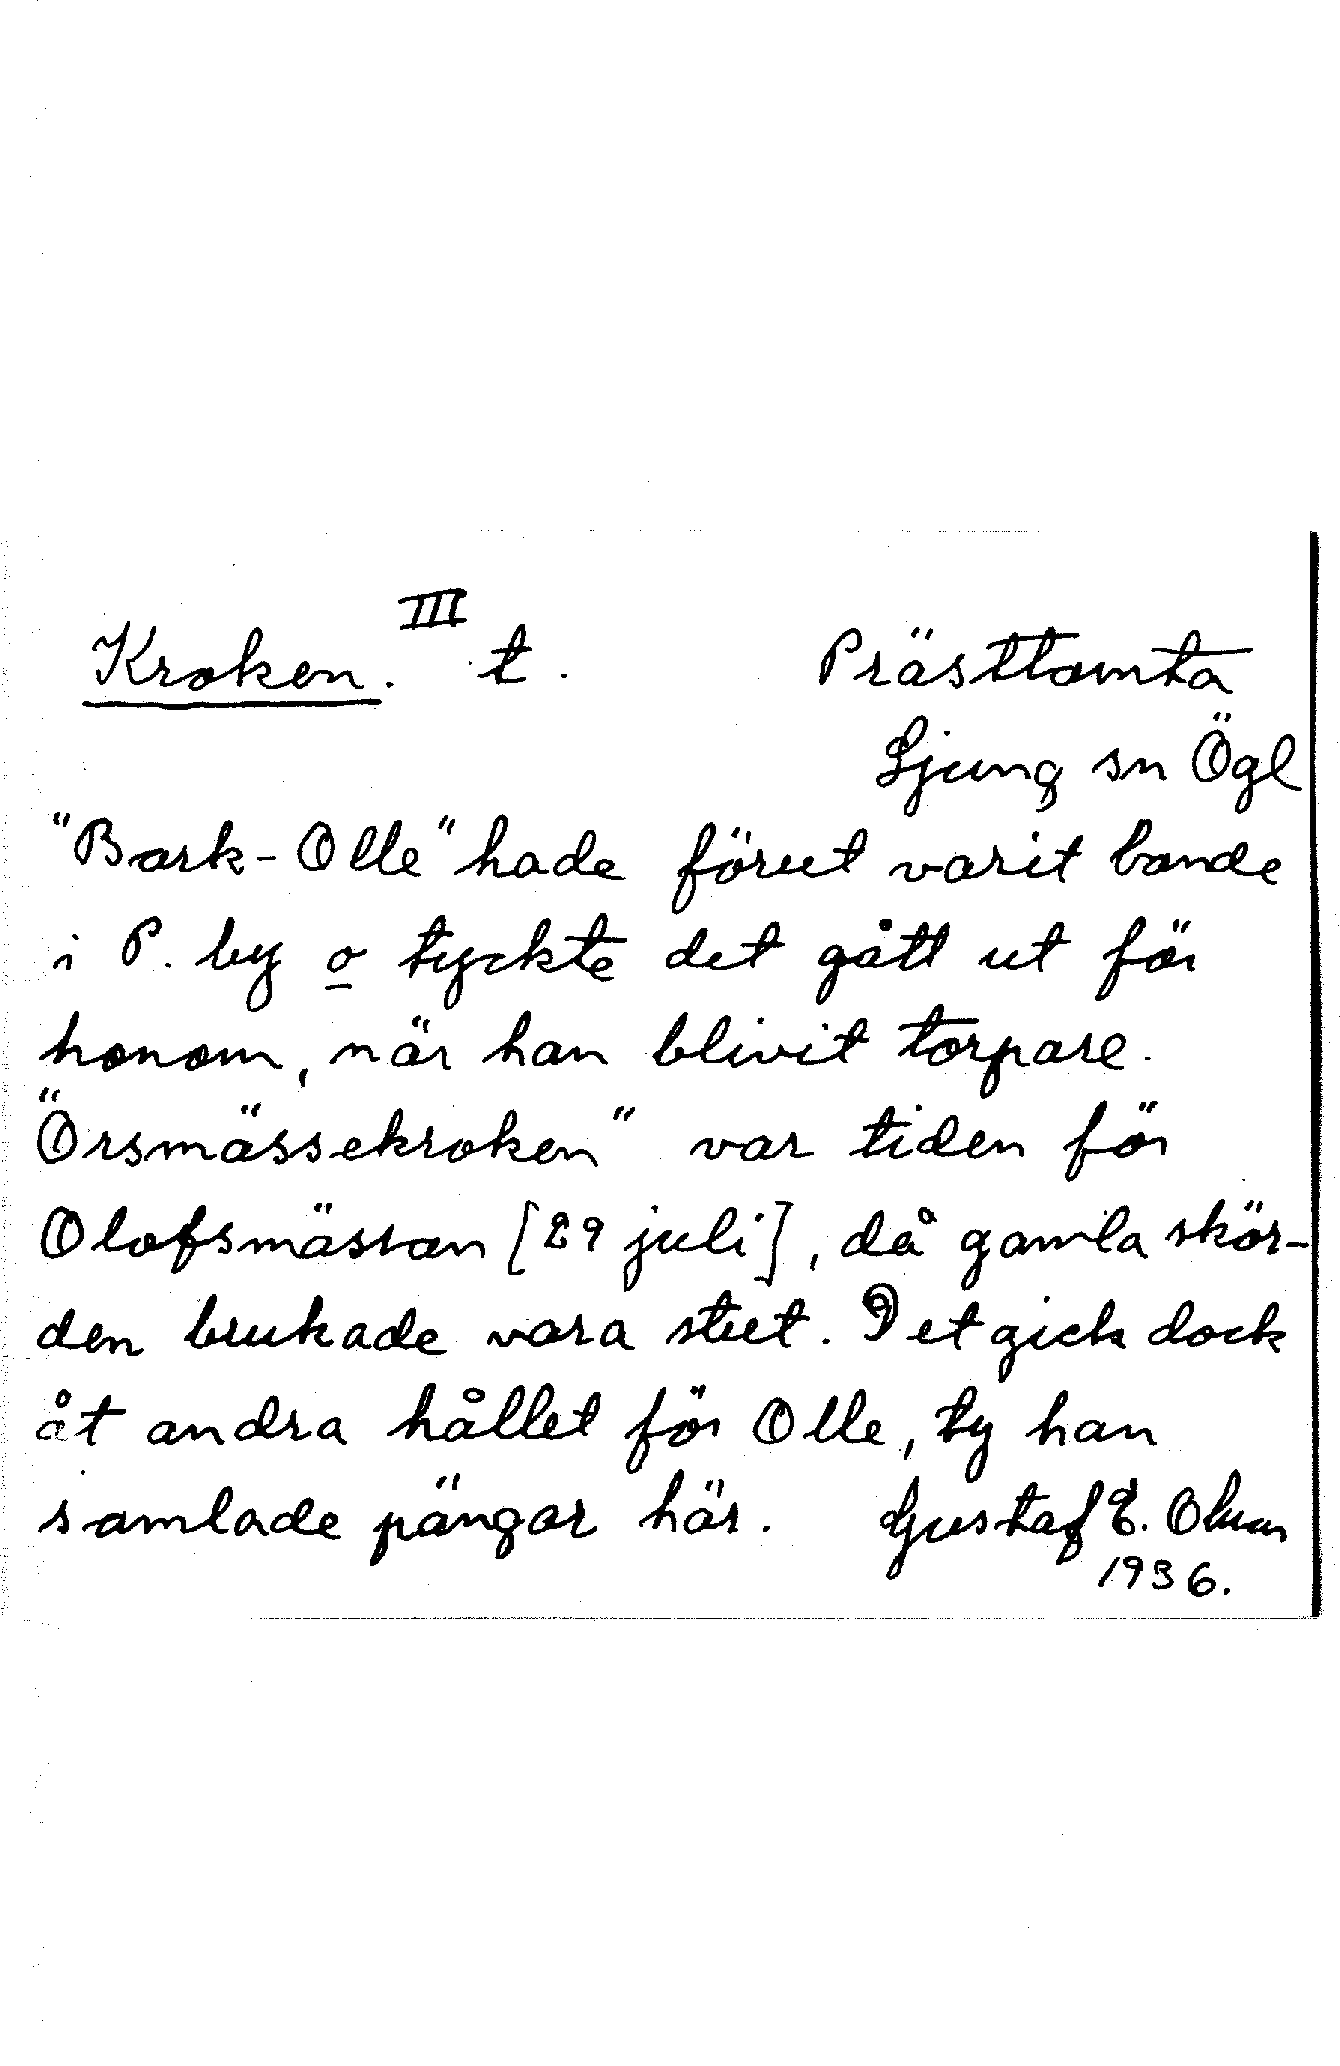 Kroken. III t. Prästtomta
Ljung sn Ögl
"Bark-Olle" hade förut varit bonde
i P. by o tyckte det gått ut för
honom, när han blivit torpare.
"Örsmässekroken" var tiden för
Olofsmässan [29 juli], då gamla skör-
den brukade vara slut. Det gick dock
åt andra hållet för Olle, ty han
samlade pängar här. Gustaf E. Olson
1936.